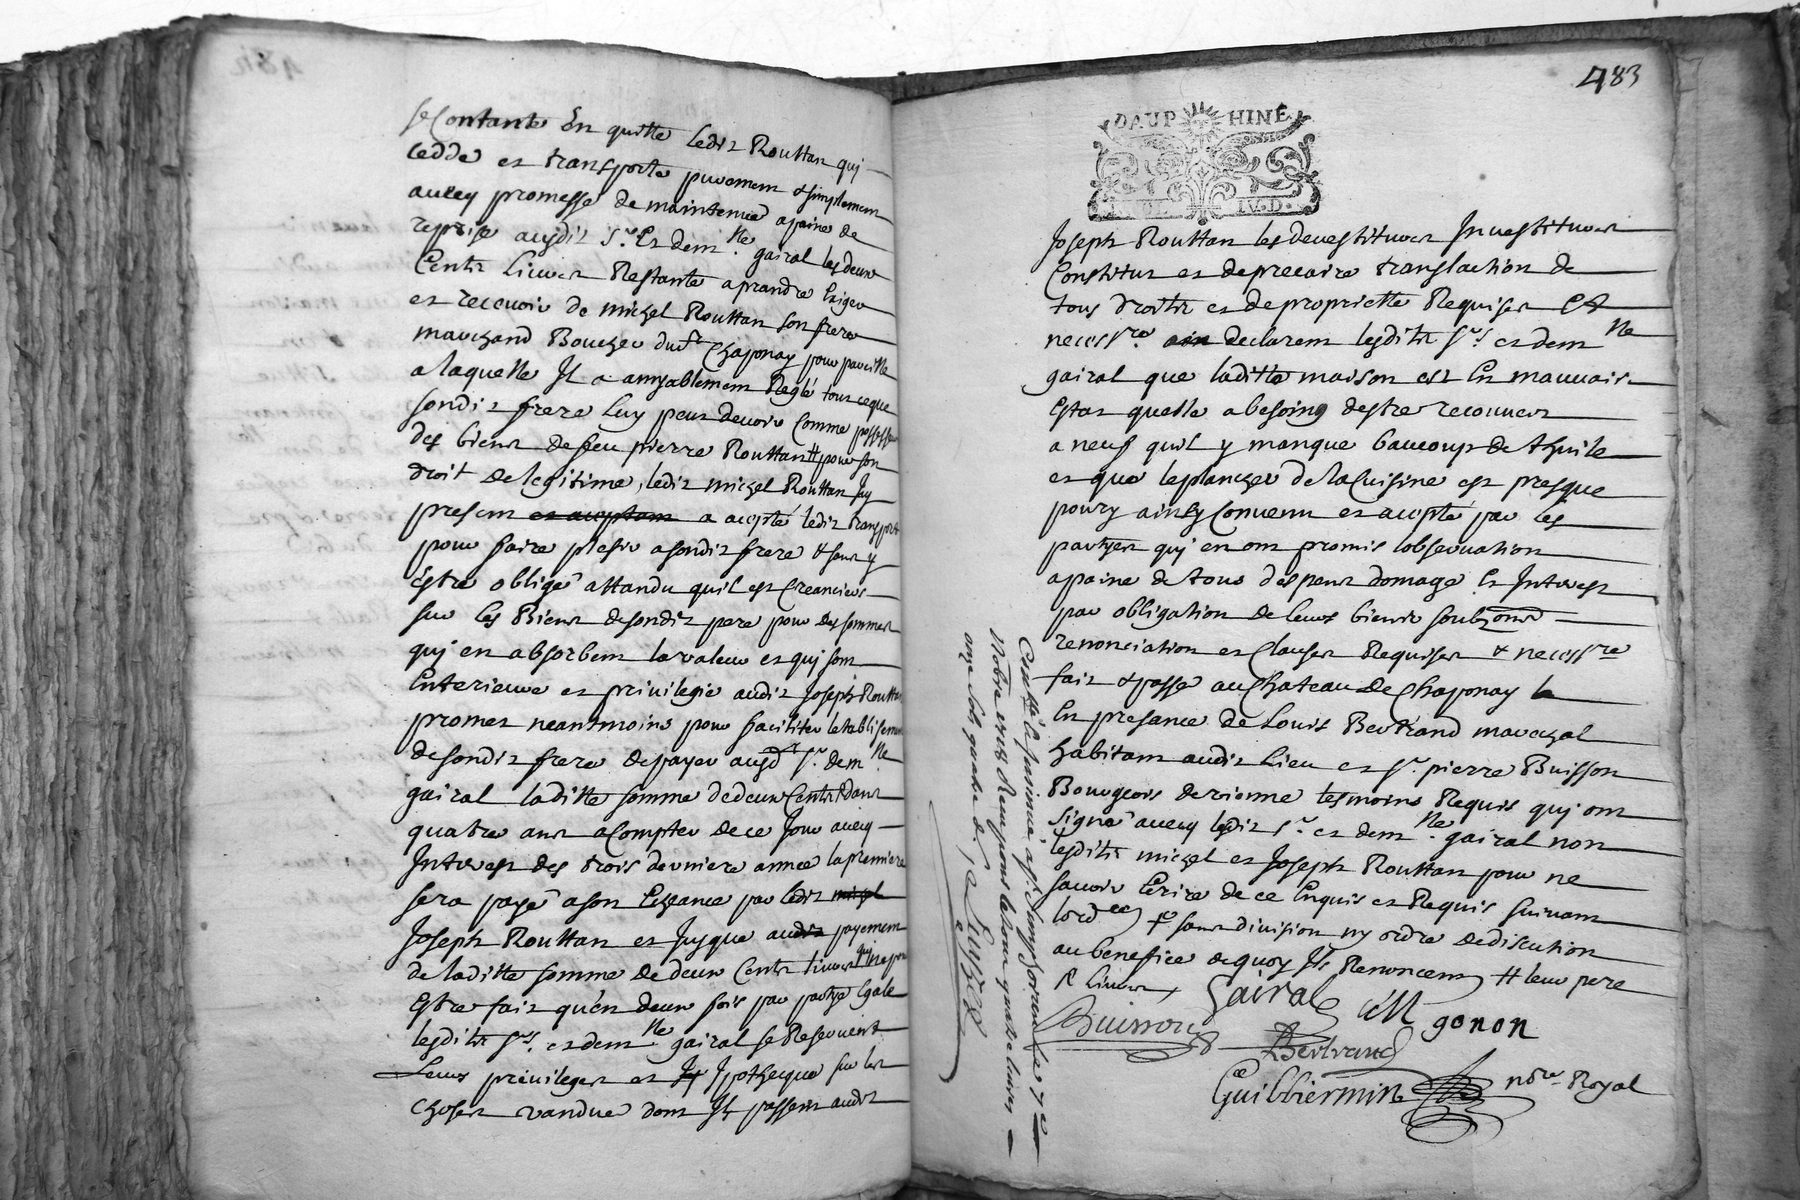 se Contante En quitte ledit Routtan quj
cedde et transporte purement & simplement
avecq promesse de maintenue a paine de
reprise ausdit Sr. Et demlle. gairal les deux
Cents livres Restante a prandre Exiger
et recevoir de michel Routtan son frere
marchand Boucher dudt Chaponay pour pareille
a laquelle Il a amyablement Reglé tout ce que
sondit frere luy peut devoir Comme possesseur
des biens de feu pierre Routtan # pour son
droit de legitime, ledit michel Routtan Jcy
present et aceptant a acepté ledit transport
pour faire plesir a sondit frere & sans y
Estre obligé attandu quil est Creancier
sur les Biens de sondit pere pour des sommes
quj en absorbent la valeur et quj sont
Enterieure et privilegié audit Joseph Routtan
promet neantmoins pour faciliter letablisement
de sondit frere de payer ausdt Sr. demlle
gairal laditte somme de deux Cents # dans
quatre ans a Compter de ce Jour avecq
Jnterest des trois derniere année la premiere
sera payé a son Echeance par ledit michel
Joseph Routtan et Jusque audit payement
de laditte somme de deux Cents livres quj ne pourra
Estre fait qu'en deux fois par partye Egale
lesdits Srs. et demlle gairal se Reservent
Leurs privileges et Jp Jpotheque sur les
choses vandue dont Ils passent audit
483
DAUPHINÉ
IV.D.
Joseph Routtan les devestitures Jnvestitures
Constitut et de precaire translaction de
tous droits et de proprietté Requises Et
necessre. ain declarent lesdits Srs. et demlle
gairal que laditte maison est En mauvais
Estat quelle a besoing destre recouvert
a neuf quil y manque baucoup de thuile
et que le plancher de la Cuisine est presque
poury ainsy Convenu et acepté par les
partyes quj en ont promis lobservation
a paine de tous despens domage Et Jnterest
par obligation de leurs biens soubz
renonciation et Clauses Requises & necessre
fait & passé au Chateau de Chaponay le
En presance de Louis Bertrand marechal
habitant audit Lieu et Sr. pierre Buisson
Bourgeois de vienne tesmoins Requis quj ont
signé avecq lesdit Sr. et demlle. gairal non
lesdits michel et Joseph Routtan pour ne
savoir Ecrire de ce Enquis et Requis suivant
lordce sans division ny ordre de discution
au benefice de quoy Ils Renoncent # leur pere
Gairal
M gonon
Buisson
Bertrand
Guilliermin nore Royal